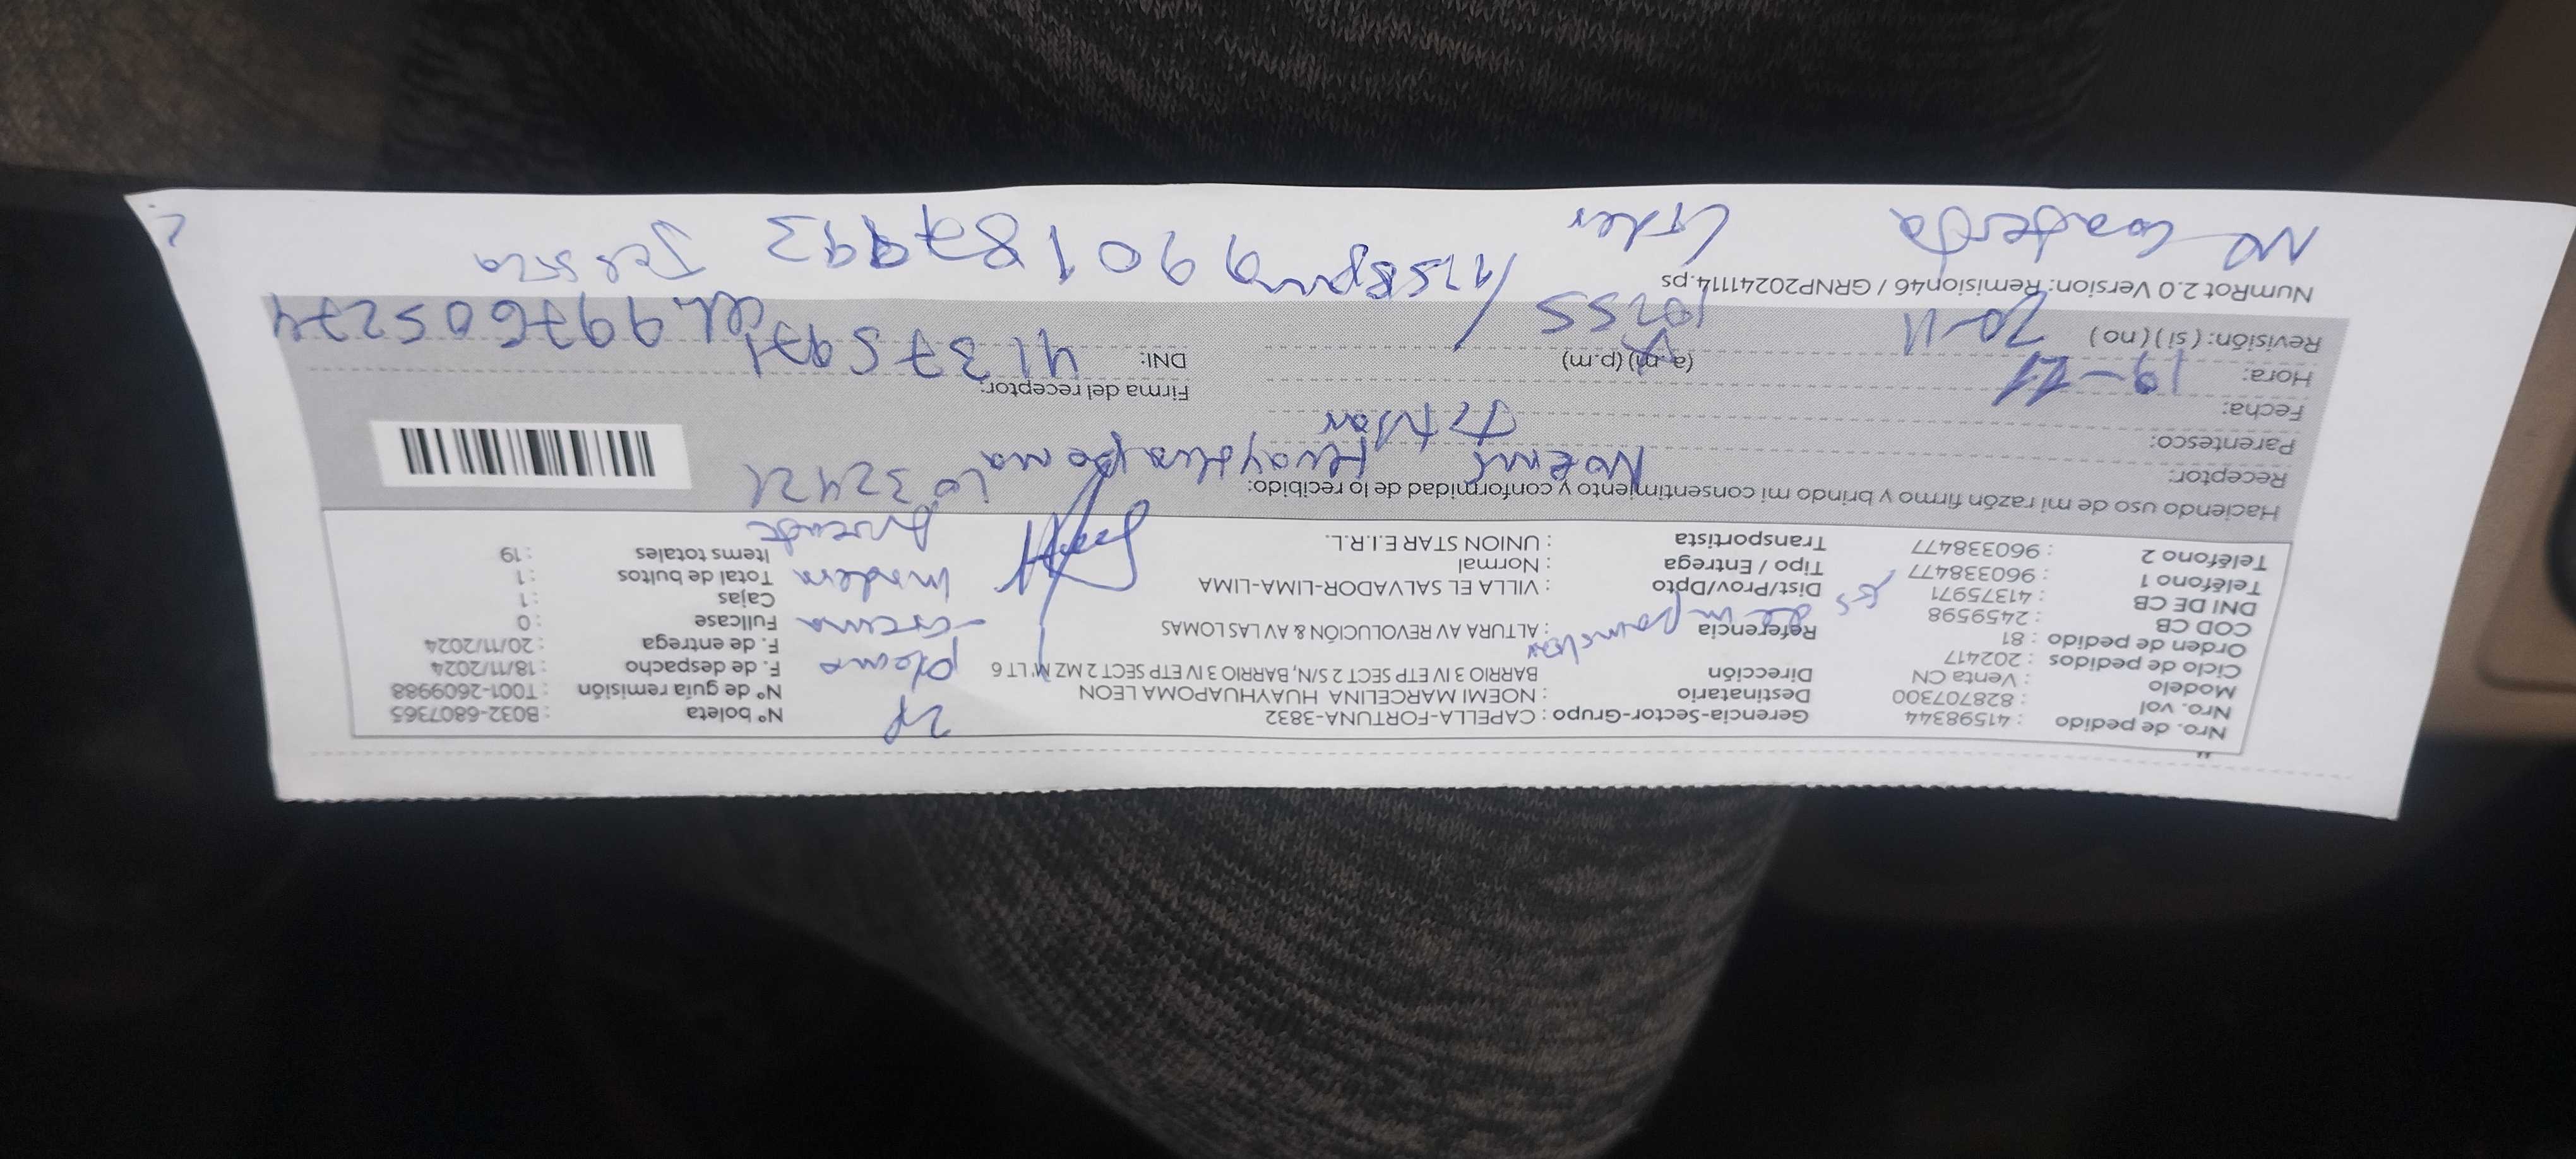 Nro. de pedido : 41598344
Nro. vol : 828707300
Modelo : Venta CN
Ciclo de pedidos : 202417
Orden de pedido : 81
COD CB : 2459598
DNI DE CB : 41375971
Teléfono 1 : 960338477
Teléfono 2 : 960338477
Gerencia-Sector-Grupo : CAPELLA-FORTUNA-3832
Destinatario : NOEMI MARCELINA HUAYHUAPOMA LEON
Dirección BARRIO 3 IV ETP SECT 2 S/N, BARRIO 3 IV ETP SECT 2 MZ M' LT 6
Referencia : ALTURA AV REVOLUCIÓN & AV LAS LOMAS
Dist/Prov/Dpto : VILLA EL SALVADOR-LIMA-LIMA
Tipo / Entrega : Normal
Transportista : UNION STAR E.I.R.L.
2P
crema
Nº boleta : B032-6807365
Nº de guía remisión : T001-2609988
F. de despacho : 18/11/2024
F. de entrega : 20/11/2024
Fullcase : 0
Cajas : 1
Total de bultos : 1
Items totales : 19
Haciendo uso de mi razón firmo y brindo mi consentimiento y conformidad de lo recibido:
Receptor: Noemi Huayhuapoma
Parentesco: Titular
Fecha: 19-11
Hora: 20-11 (a.m) (p.m)
Revisión: ( si ) ( no ) 10:55
Firma del receptor:
DNI: 41375971
CEL 997605274
NumRot 2.0 Version: Remision46 / GRNP20241114.ps
No contesta 12:58pm 990187993